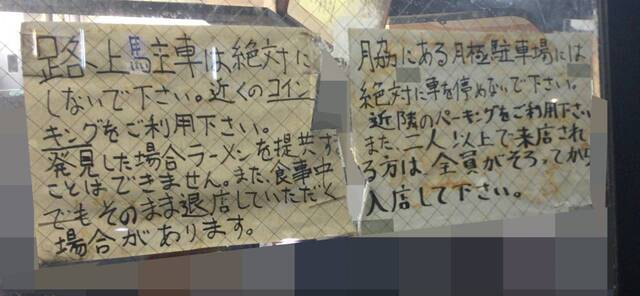 路上駐車は絶対に
しないで下さい。近くのコイン
キングをご利用下さい。
発見した場合ラーメンを提供す
ことはできません。また、食事中
でもそのまま退店していただく
場合があります。
月脇にある月極駐車場には
絶対に車を停めないで下さい。
近隣のパーキングをご利用下さい
また、二人以上で来店され
る方は、全員がそろってから
入店して下さい。